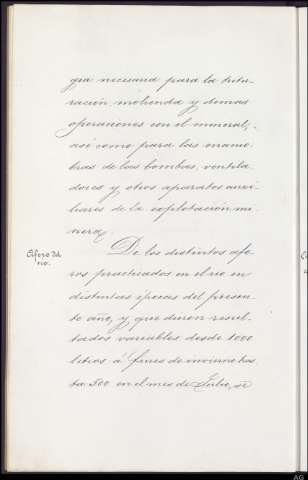 gia necesaria para la tritu-
ración, molienda y demas
operaciones con el mineral,
asi como para las manio-
bras de las bombas, ventila-
dores y otros aparatos auxi-
liares de la explotación mi-
nera.
Aforo del
rio.
De los distintos afo-
ros practicados en el rio en
distintas épocas del presen-
te año, y que dieron resul-
tados variables desde 1000
litros á fines de invierno has-
ta 500 en el mes de Julio, se
AG